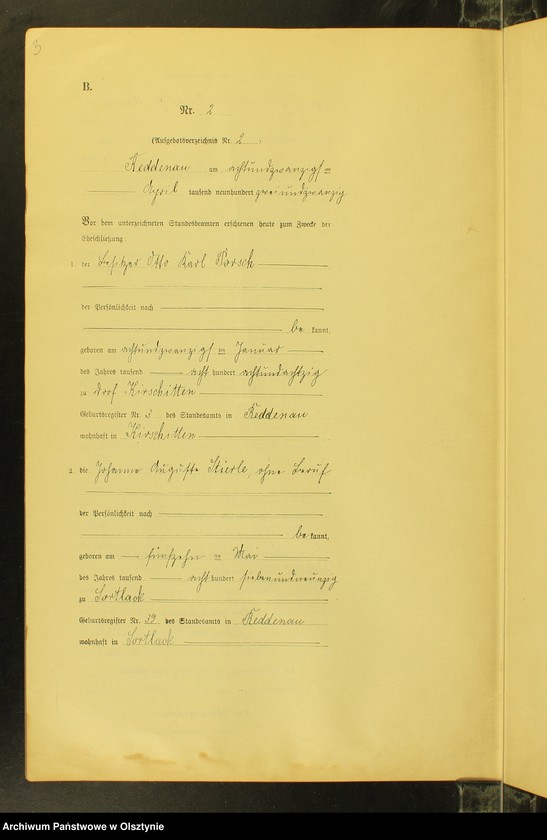 3
B.
Nr. 2
(Aufgebotsverzeichnis Nr. 2.)
Reddenau am achtundzwanzigsten
April tausend neunhundert zweiundzwanzig
Vor dem unterzeichneten Standesbeamten erschienen heute zum Zwecke der
Eheschließung:
1. der Besitzer Otto Karl Porsch
der Persönlichkeit nach
be kannt,
geboren am achtundzwanzigsten Januar
des Jahres tausend acht hundert achtundachtzig
zu Dorf Kirschitten
Geburtsregister Nr. 5 des Standesamts in Reddenau
wohnhaft in Kirschitten
2. die Johanne Auguste Stierle, ohne Beruf
der Persönlichkeit nach
be kannt,
geboren am fünfzehnten Mai
des Jahres tausend acht hundert siebenundneunzig
zu Sortlack
Geburtsregister Nr. 39 des Standesamts in Reddenau
wohnhaft in Sortlack
Archiwum Państwowe w Olsztynie